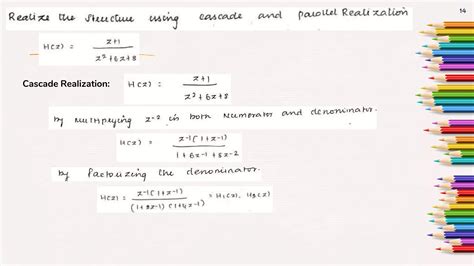 Realize the structure using cascade and parallel Realization
14
H(z) = z+1 / z²+6z+8
Cascade Realization: H(z) = z+1 / z²+6z+8
by multiplying z-2 in both numerator and denominator.
H(z) = z-1(1+z-1) / 1+6z-1+8z-2
by factorizing the denominator.
H(z) = z-1(1+z-1) / (1+2z-1)(1+4z-1) = H1(z), H2(z)